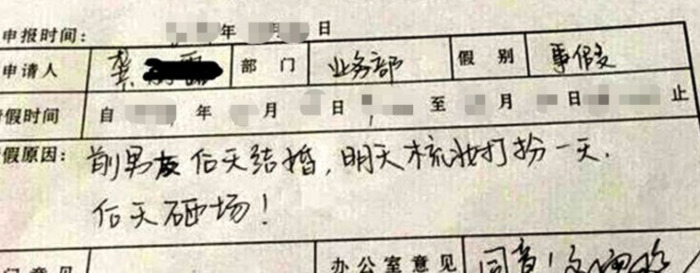 申报时间: 年 日
申请人 龚 部门 业务部 假别 事假
假时间 自 年 日 至 月 日 止
假原因: 前男友后天结婚,明天梳妆打扮一天.
后天砸场!
门意见 办公室意见 同意!